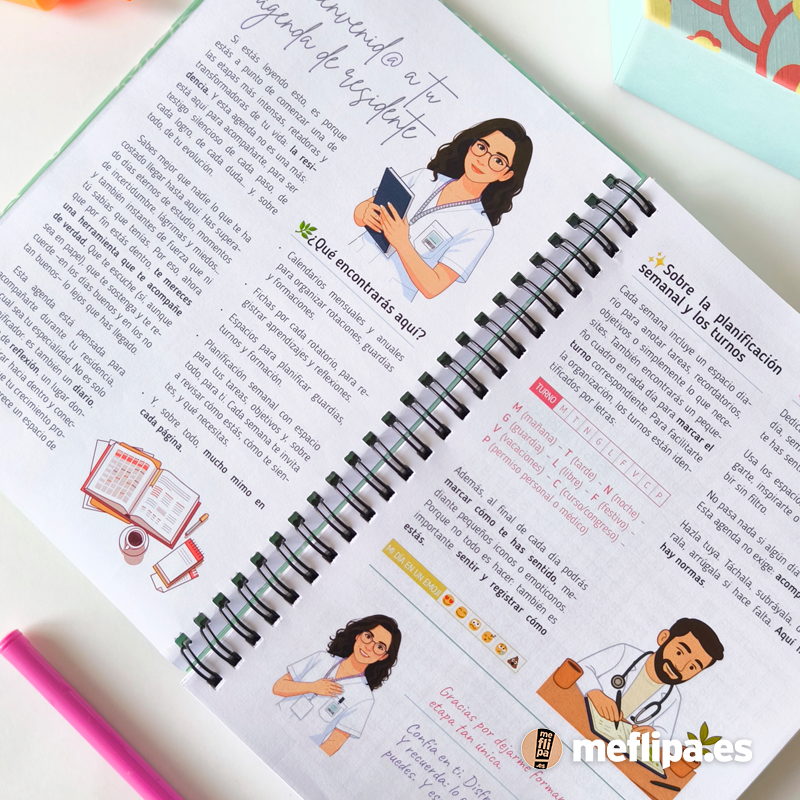 a tu
agenda de residente
Si estás leyendo esto, es porque
estás a punto de comenzar una de
las etapas más intensas, retadoras y
transformadoras de tu vida: la resi-
dencia. Y esta agenda no es una más:
está aquí para acompañarte, para ser
testigo silencioso de cada paso, de
cada logro, de cada duda... y, sobre
todo, de tu evolución.
Sabes mejor que nadie lo que te ha
costado llegar hasta aquí. Has supera-
do días eternos de estudio, momentos
de incertidumbre, lágrimas y miedos...
y también instantes de fuerza que ni
tú sabías que tenías. Por eso, ahora
que por fin estás dentro, te mereces
una herramienta que te acompañe
de verdad. Que te escuche (sí, aunque
sea en papel), que te sostenga y te re-
cuerde –en los días buenos y en los no
tan buenos– lo lejos que has llegado.
Esta agenda está pensada para
acompañarte durante tu residencia,
cual sea tu especialidad. No es solo
ificador: es también un diario
de reflexión, un lugar donde
hacia dentro y conec-
tu crecimiento pro-
rece un espacio de
¿Qué encontrarás aquí?
· Calendarios mensuales y anuales
para organizar rotaciones, guardias
y formaciones.
· Fichas por cada rotatorio, para re-
gistrar aprendizajes y reflexiones.
· Espacios para planificar guardias,
turnos y formación.
· Planificación semanal con espacio
para tus tareas, objetivos y, sobre
todo, para ti. Cada semana te invita
a revisar cómo estás, cómo te sien-
tes, y qué necesitas.
· Y, sobre todo, mucho mimo en
cada página.
Sobre la planificación
semanal y los turnos
Cada semana incluye un espacio dia-
rio para anotar tareas, recordatorios,
objetivos o simplemente lo que nece-
sites. También encontrarás un peque-
ño cuadro en cada día para marcar el
turno correspondiente. Para facilitarte
la organización, los turnos están iden-
tificados por letras.
TURNO M T N G L F V C P
M (mañana) - T (tarde) - N (noche) -
G (guardia) - L (libre) - F (festivo) -
V (vacaciones) - C (curso/congreso) -
P (permiso personal o médico)
Además, al final de cada día podrás
marcar cómo te has sentido, me-
diante pequeños iconos o emoticonos.
Porque no todo es hacer: también es
importante sentir y registrar cómo
estás.
MI DÍA EN UN EMOJI
Gracias por dejarme formar
etapa tan única.
Confía en ti. Disfr
Y recuerda: lo
puedes. Y es
Dedic
día, sem
te has sent
Usa los espacios
garte, inspirarte o
bir sin filtro.
No pasa nada si algún día
Esta agenda no exige: acomp
Hazla tuya. Táchala, subráyala,
rala, arrúgala si hace falta. Aquí n
hay normas.
me
fli
pa
.es
meflipa.es